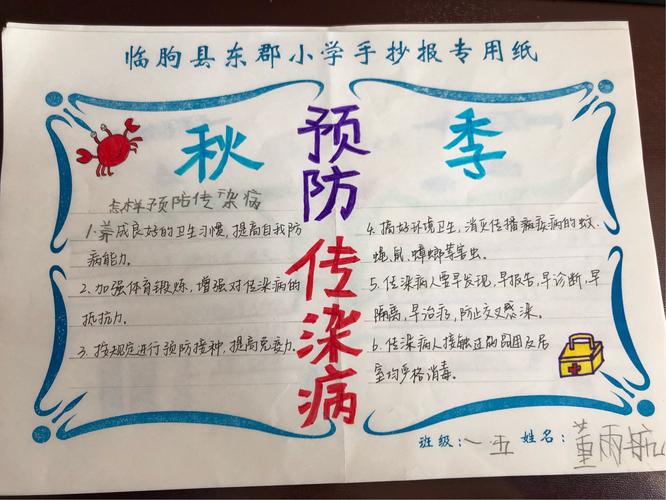 临朐县东郡小学手抄报专用纸
秋 季
预防
传染病
怎样预防传染病
1.养成良好的卫生习惯,提高自我防
病能力。
2.加强体育锻炼,增强对传染病的
抵抗力。
3.按规定进行预防接种,提高免疫力.
4.搞好环境卫生,消灭传播疾病的蚊、
蝇、鼠、蟑螂等害虫。
5.传染病人要早发现,早报告,早诊断,早
隔离,早治疗,防止交叉感染。
6.传染病人接触过的用品及居
室均严格消毒。
班级:一.五 姓名:董雨航